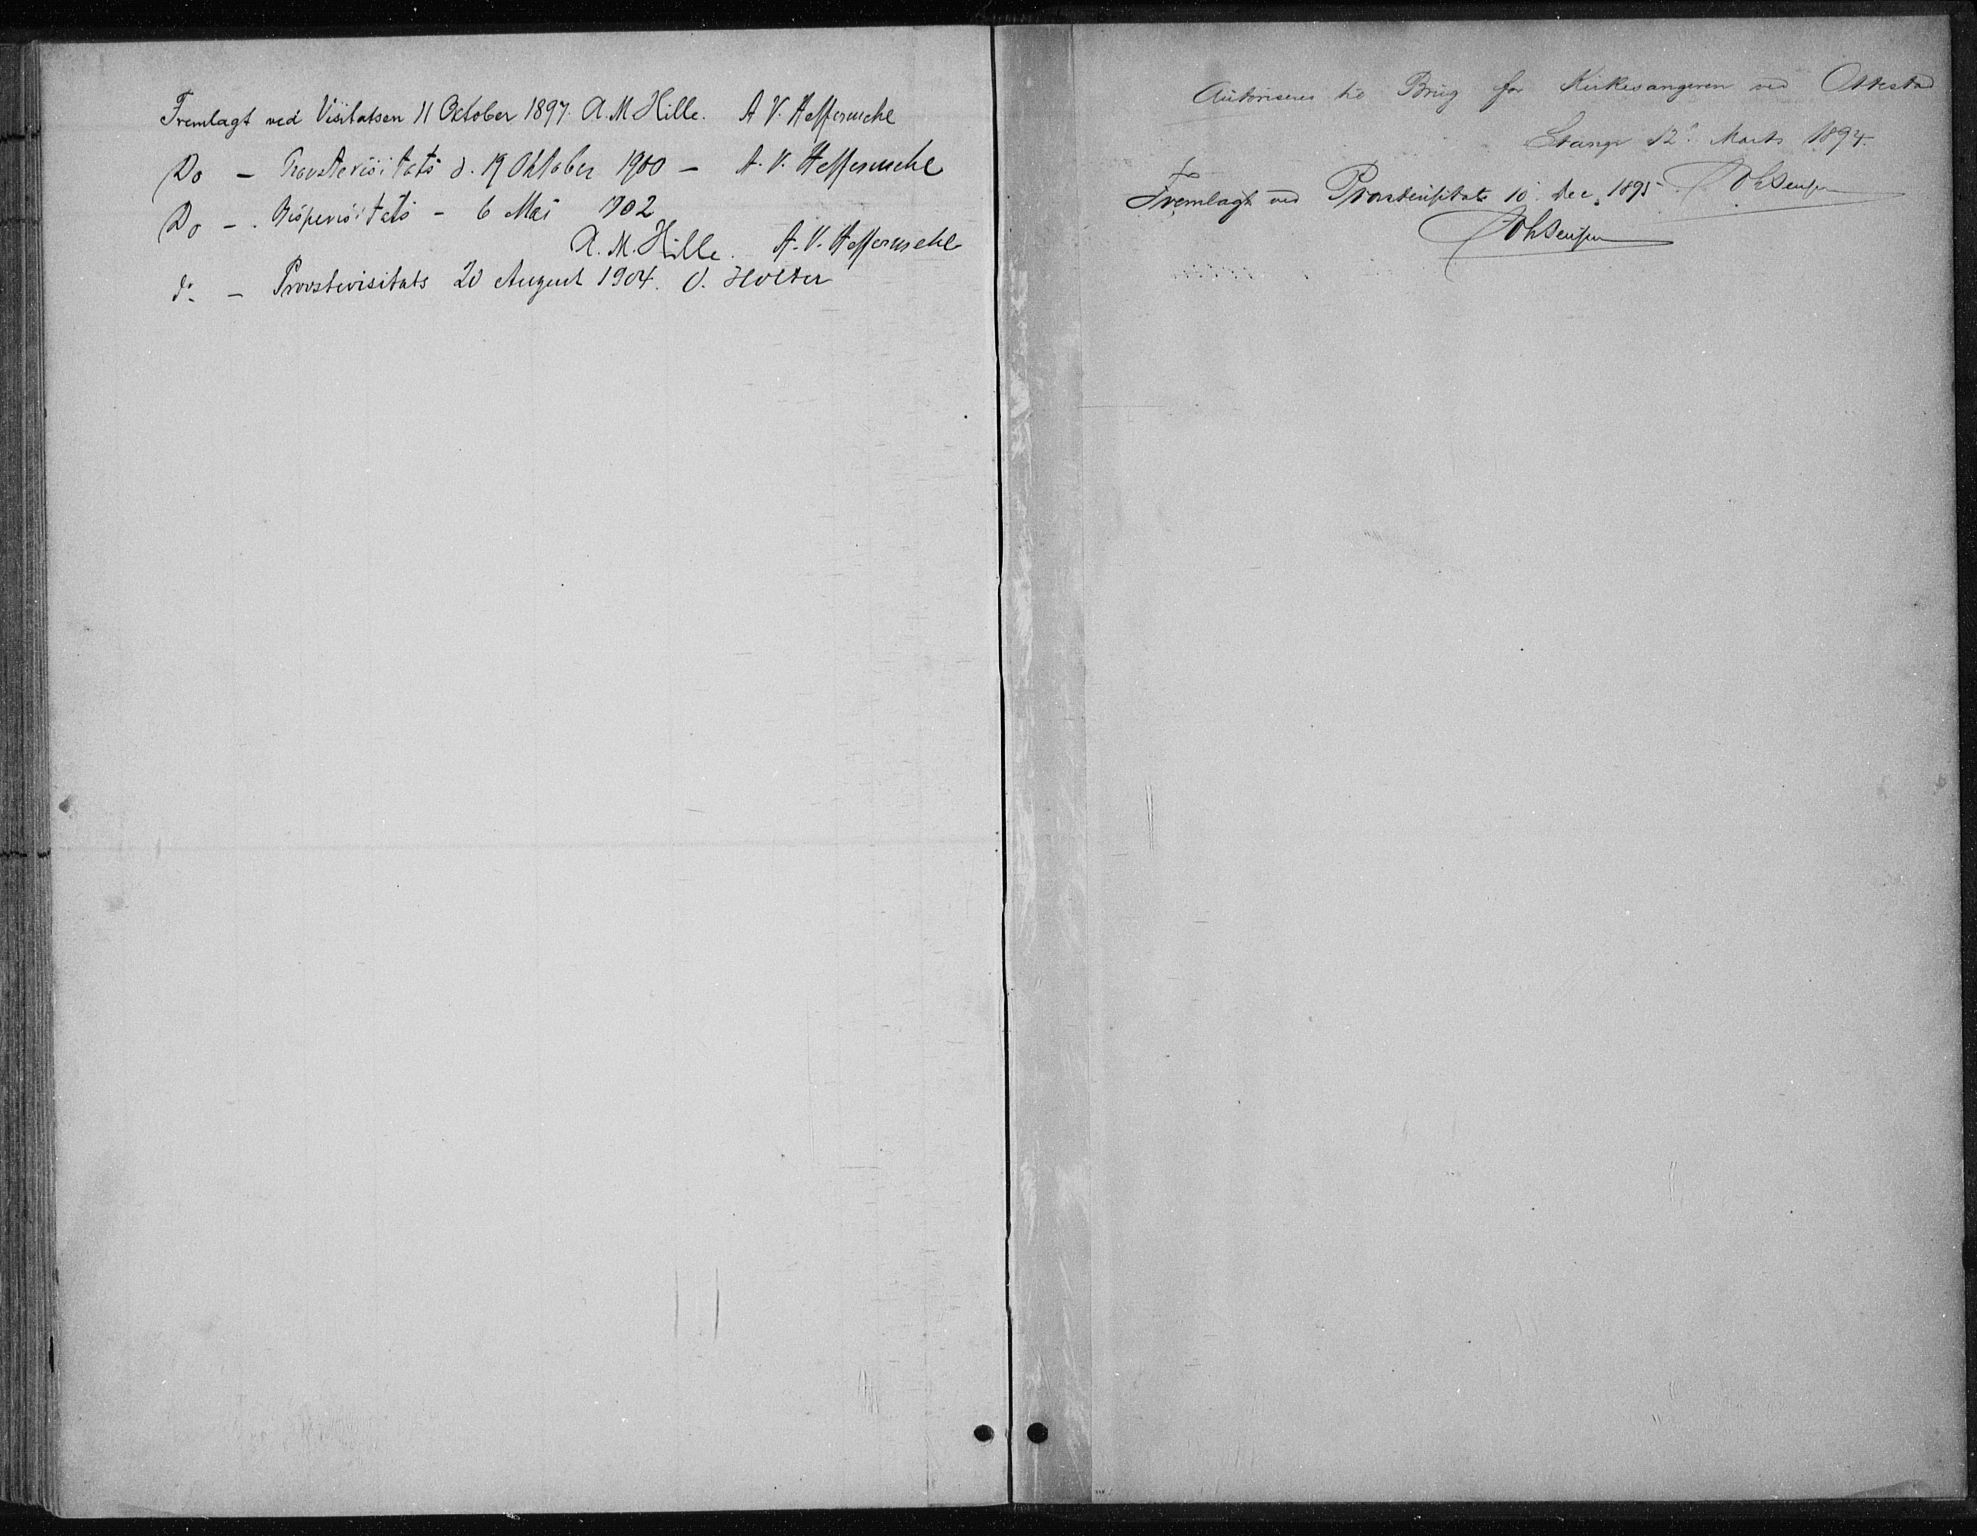 Fremlagt ved Visitatsen 11 Oktober 1897. A. M Hille. A V. Heffermehl
Do – Provstevisitats d. 19 Oktober 1900 – A. V. Heffermehl
Do – Bispevisitats – 6 Mai 1902
A. M. Hille. A. V. Heffermehl
d. – Provstevisitats 20 August 1904. O. Holter
Autoriseres til Brug for Kirkesangeren ved Ottestad
Stange 12 Marts 1894.
Fremlagt ved Provstevisitats 10 Dec. 1895